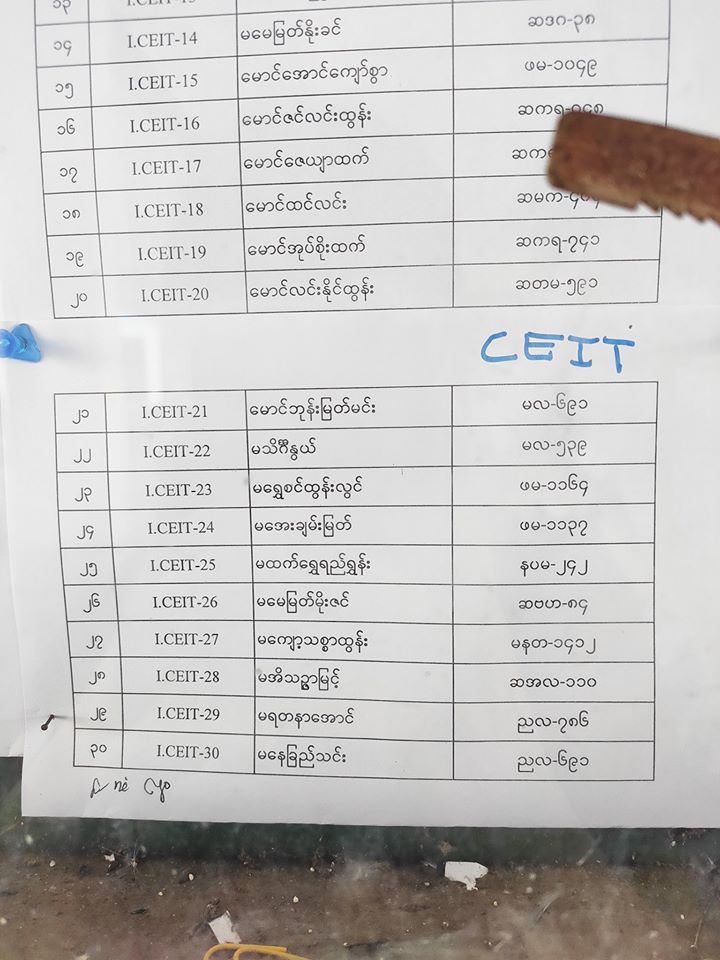 ၁၃ I.CEIT-13
၁၄ I.CEIT-14 မမေမြတ်နိုးခင် ဆဒဂ-၃၈
၁၅ I.CEIT-15 မောင်အောင်ကျော်စွာ ဖမ-၁၀၄၉
၁၆ I.CEIT-16 မောင်ဇင်လင်းထွန်း
၁၇ I.CEIT-17 မောင်ဇေယျာထက်
၁၈ I.CEIT-18 မောင်ထင်လင်း
၁၉ I.CEIT-19 မောင်အုပ်စိုးထက် ဆကရ-၇၄၁
၂၀ I.CEIT-20 မောင်လင်းနိုင်ထွန်း ဆတမ-၅၉၁
CEIT
၂၁ I.CEIT-21 မောင်ဘုန်းမြတ်မင်း မလ-၆၉၁
၂၂ I.CEIT-22 မသိင်္ဂီနွယ် မလ-၅၃၉
၂၃ I.CEIT-23 မရွှေစင်ထွန်းလွင် ဖမ-၁၁၆၄
၂၄ I.CEIT-24 မအေးချမ်းမြတ် ဖမ-၁၁၃၇
၂၅ I.CEIT-25 မထက်ရွှေရည်ရွှန်း နပမ-၂၄၂
၂၆ I.CEIT-26 မမေမြတ်မိုးဇင် ဆဗဟ-၈၄
၂၇ I.CEIT-27 မကျော့သစ္စာထွန်း မနတ-၁၄၁၂
၂၈ I.CEIT-28 မအိသဉ္ဇာမြင့် ဆအလ-၁၁၀
၂၉ I.CEIT-29 မရတနာအောင် ညလ-၇၈၆
၃၀ I.CEIT-30 မနေခြည်သင်း ညလ-၆၉၁